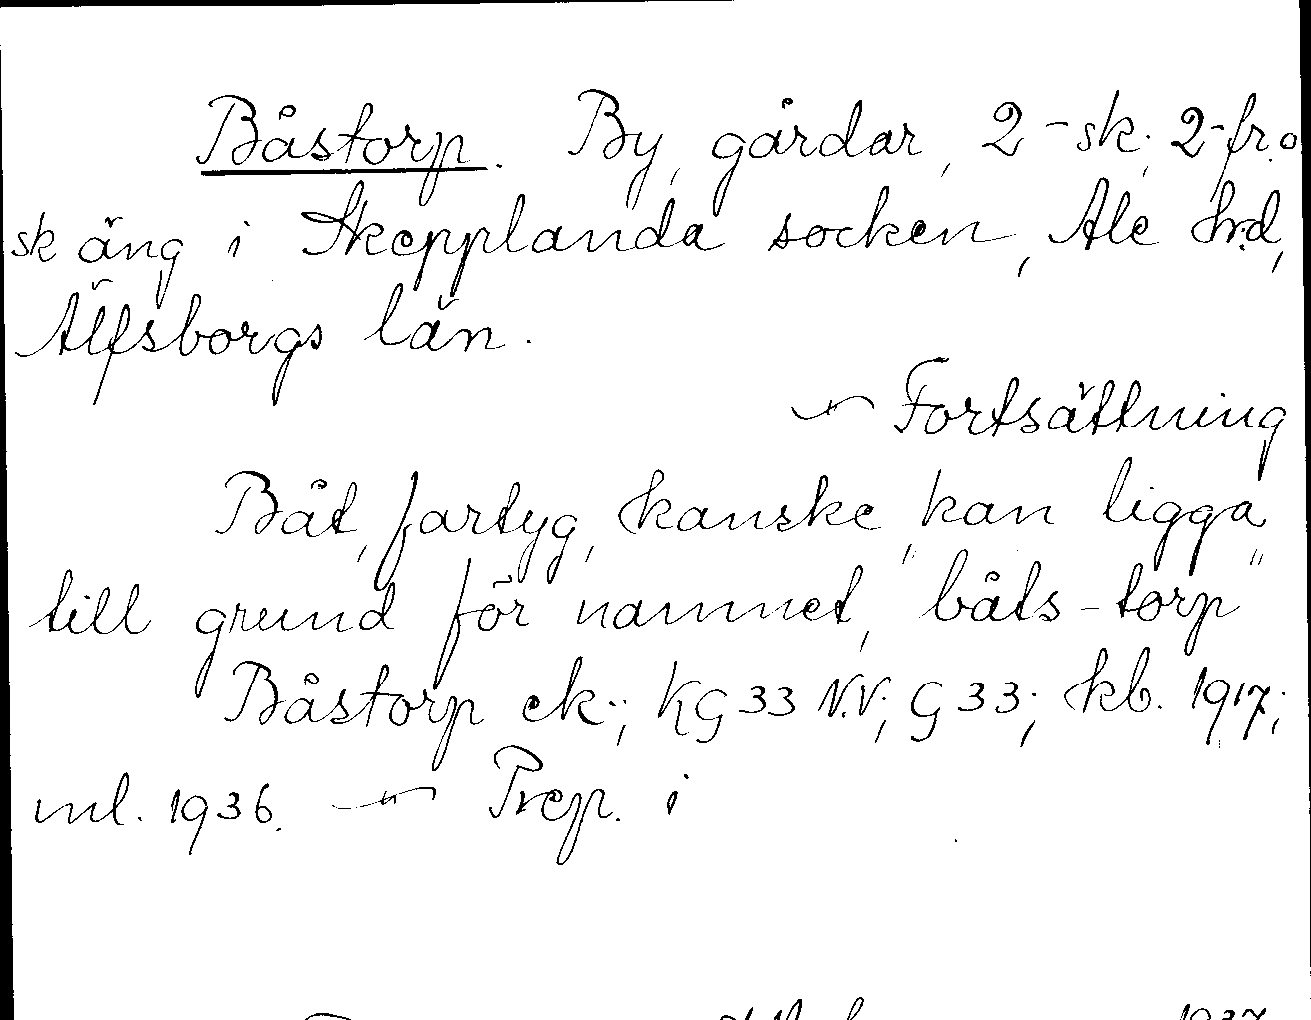 Båstorp. By, gårdar, 2-sk; 2-fr. o
sk äng i Skepplanda socken, Ale hrd,
Älfsborgs län.
~"~ Fortsättning
Båt, fartyg, kanske, kan ligga
till grund för namnet, "båts-torp"
Båstorp ek.; KG 33 N.V.; G 33; kb. 1917;
ml. 1936. —"— Prep. i
1937